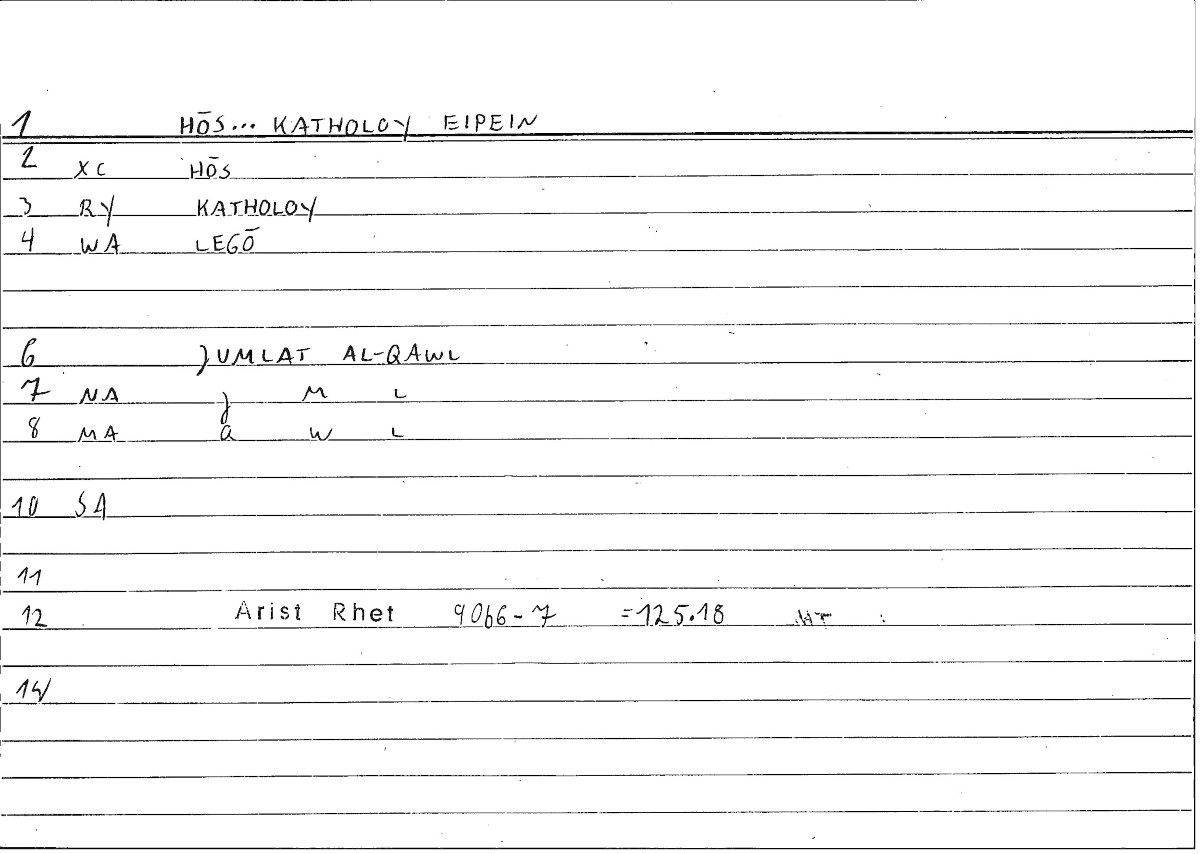 1 HŌS... KATHOLOY EIPEIN
2 XC HŌS
3 RY KATHOLOY
4 WA LEGŌ
6 JUMLAT AL-QAWL
7 NA J M L
8 MA Q W L
10 SA
11
12 Arist Rhet 9066-7 =125.18
14